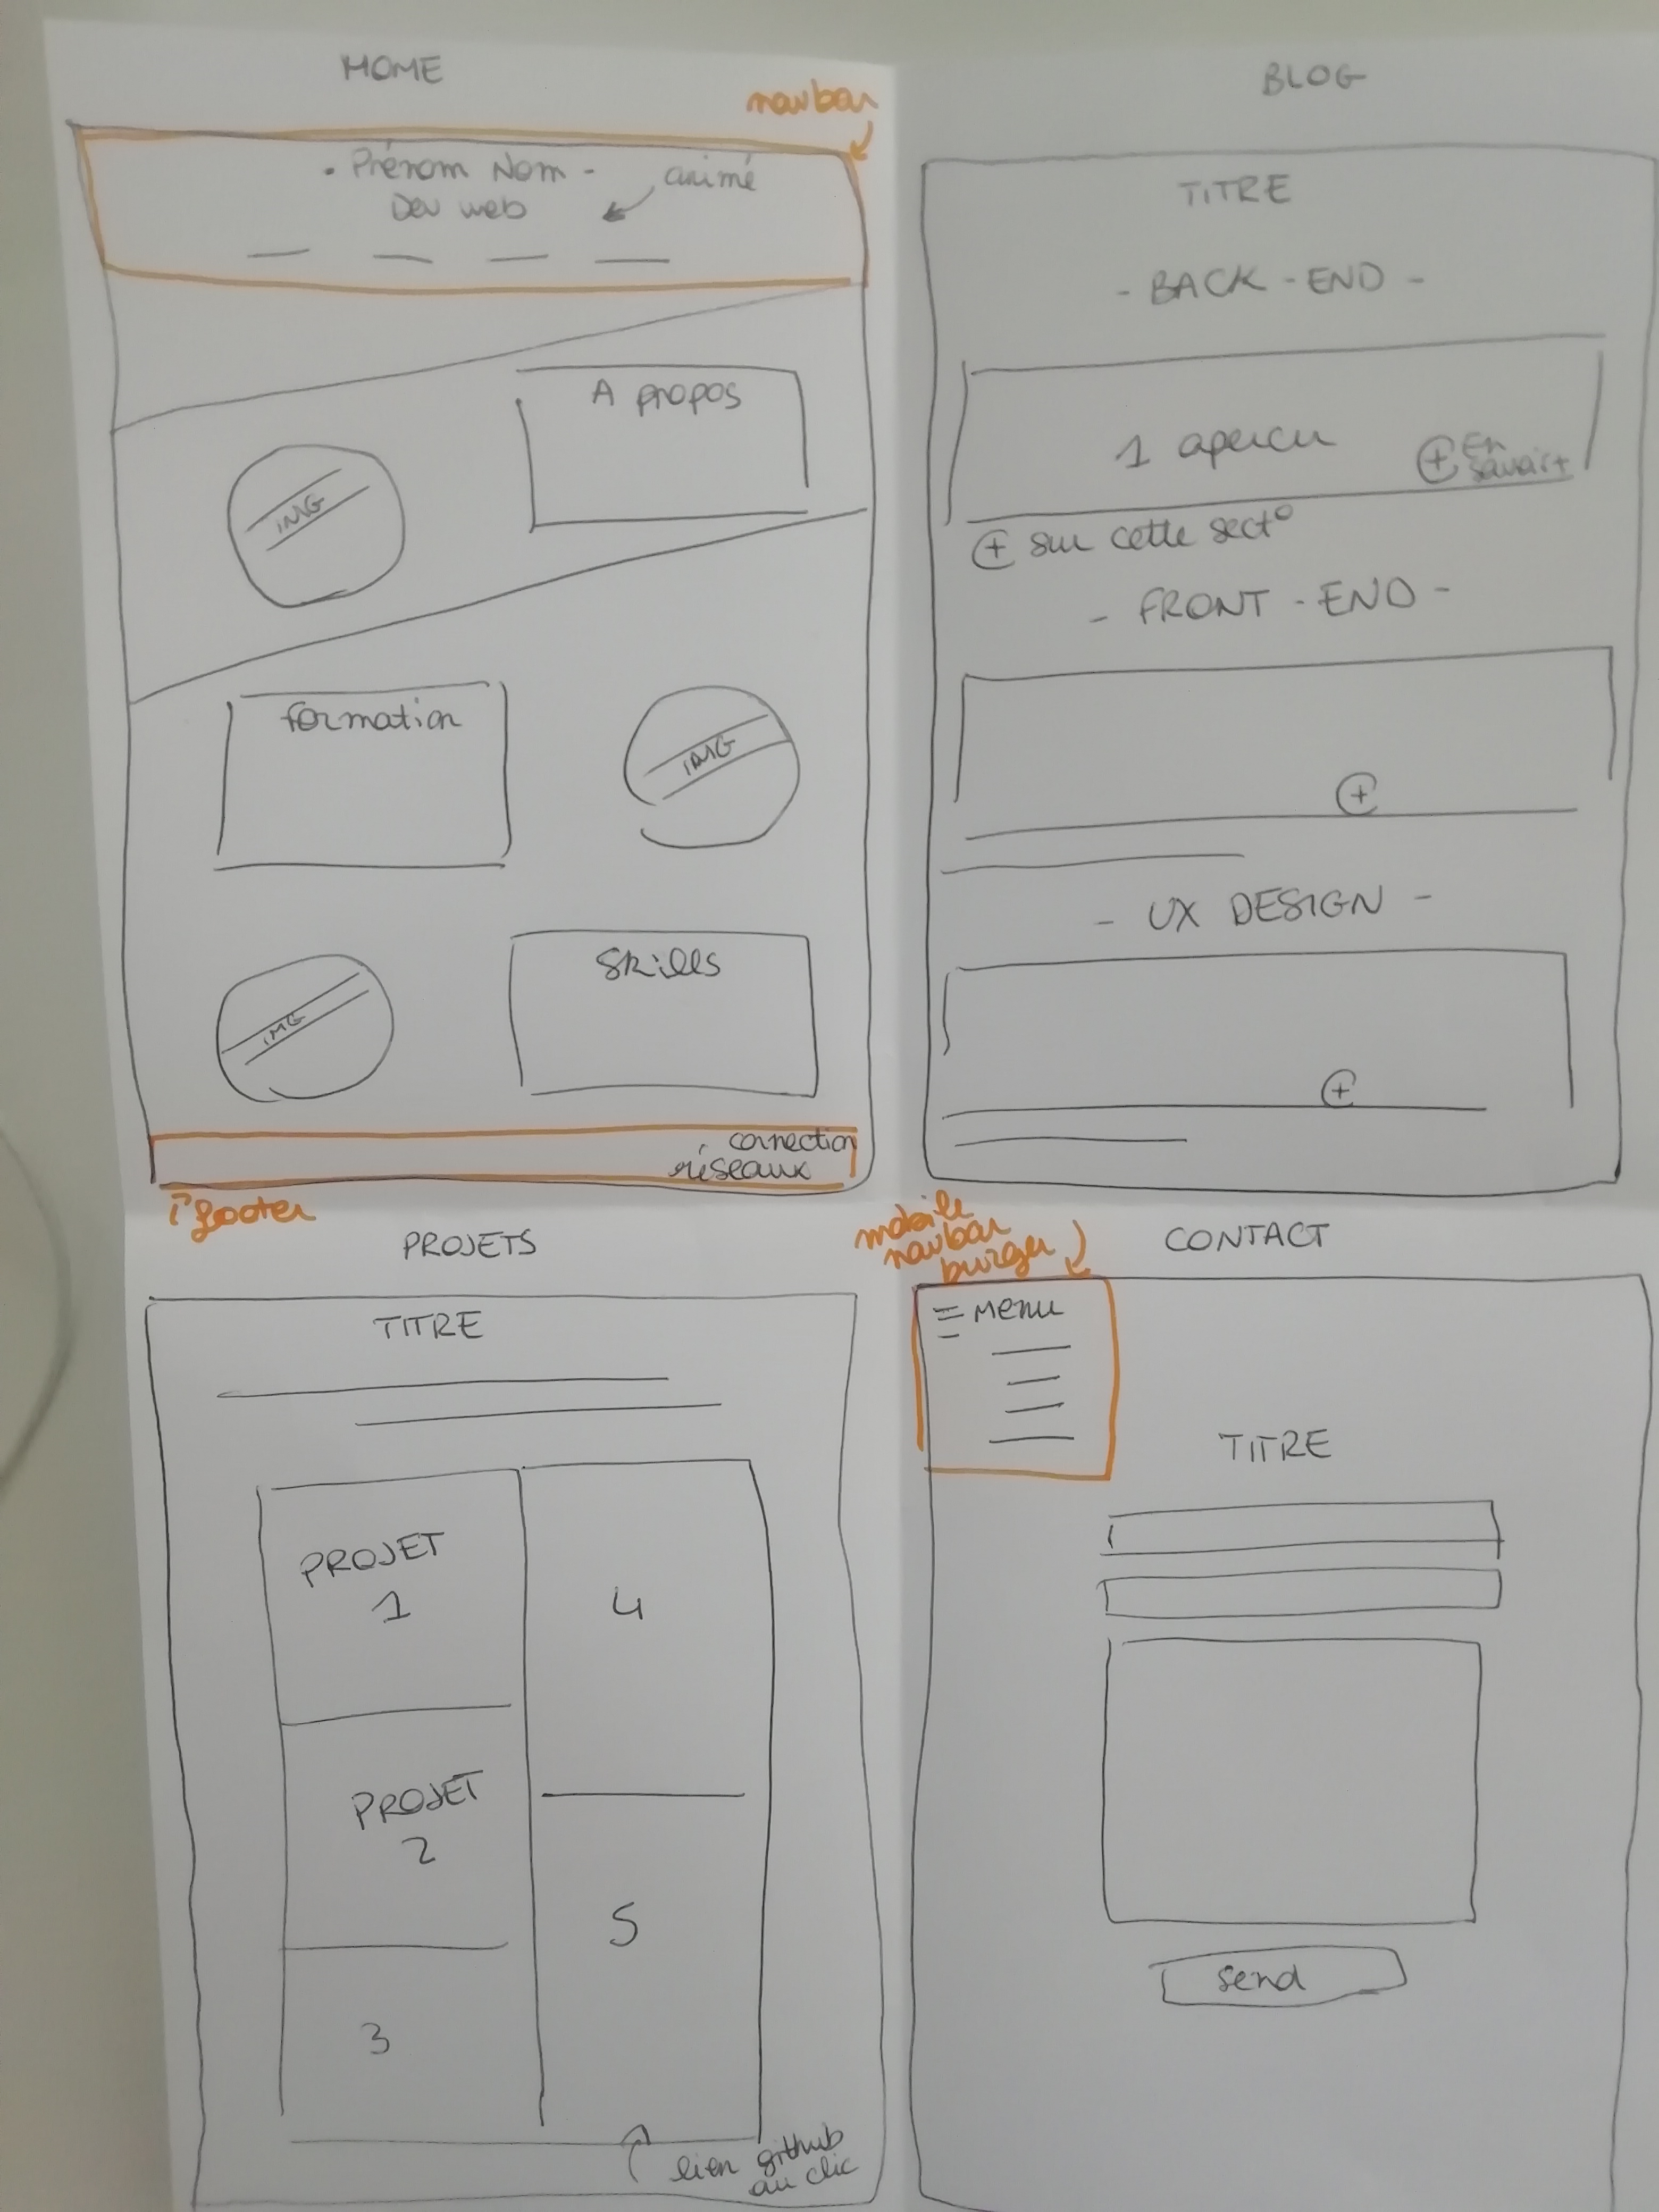 HOME
navbar
- Prénom Nom -
Dev web
animé
A propos
IMG
formation
IMG
IMG
Skills
connection
réseaux
footer
BLOG
TITRE
- BACK - END -
1 apercu
+ En
savoir +
+ sur cette sect°
- FRONT - END -
+
- UX DESIGN -
+
PROJETS
TITRE
PROJET
1
PROJET
2
3
4
5
lien github
au clic
mobile
navbar
burger
CONTACT
Menu
TITRE
send